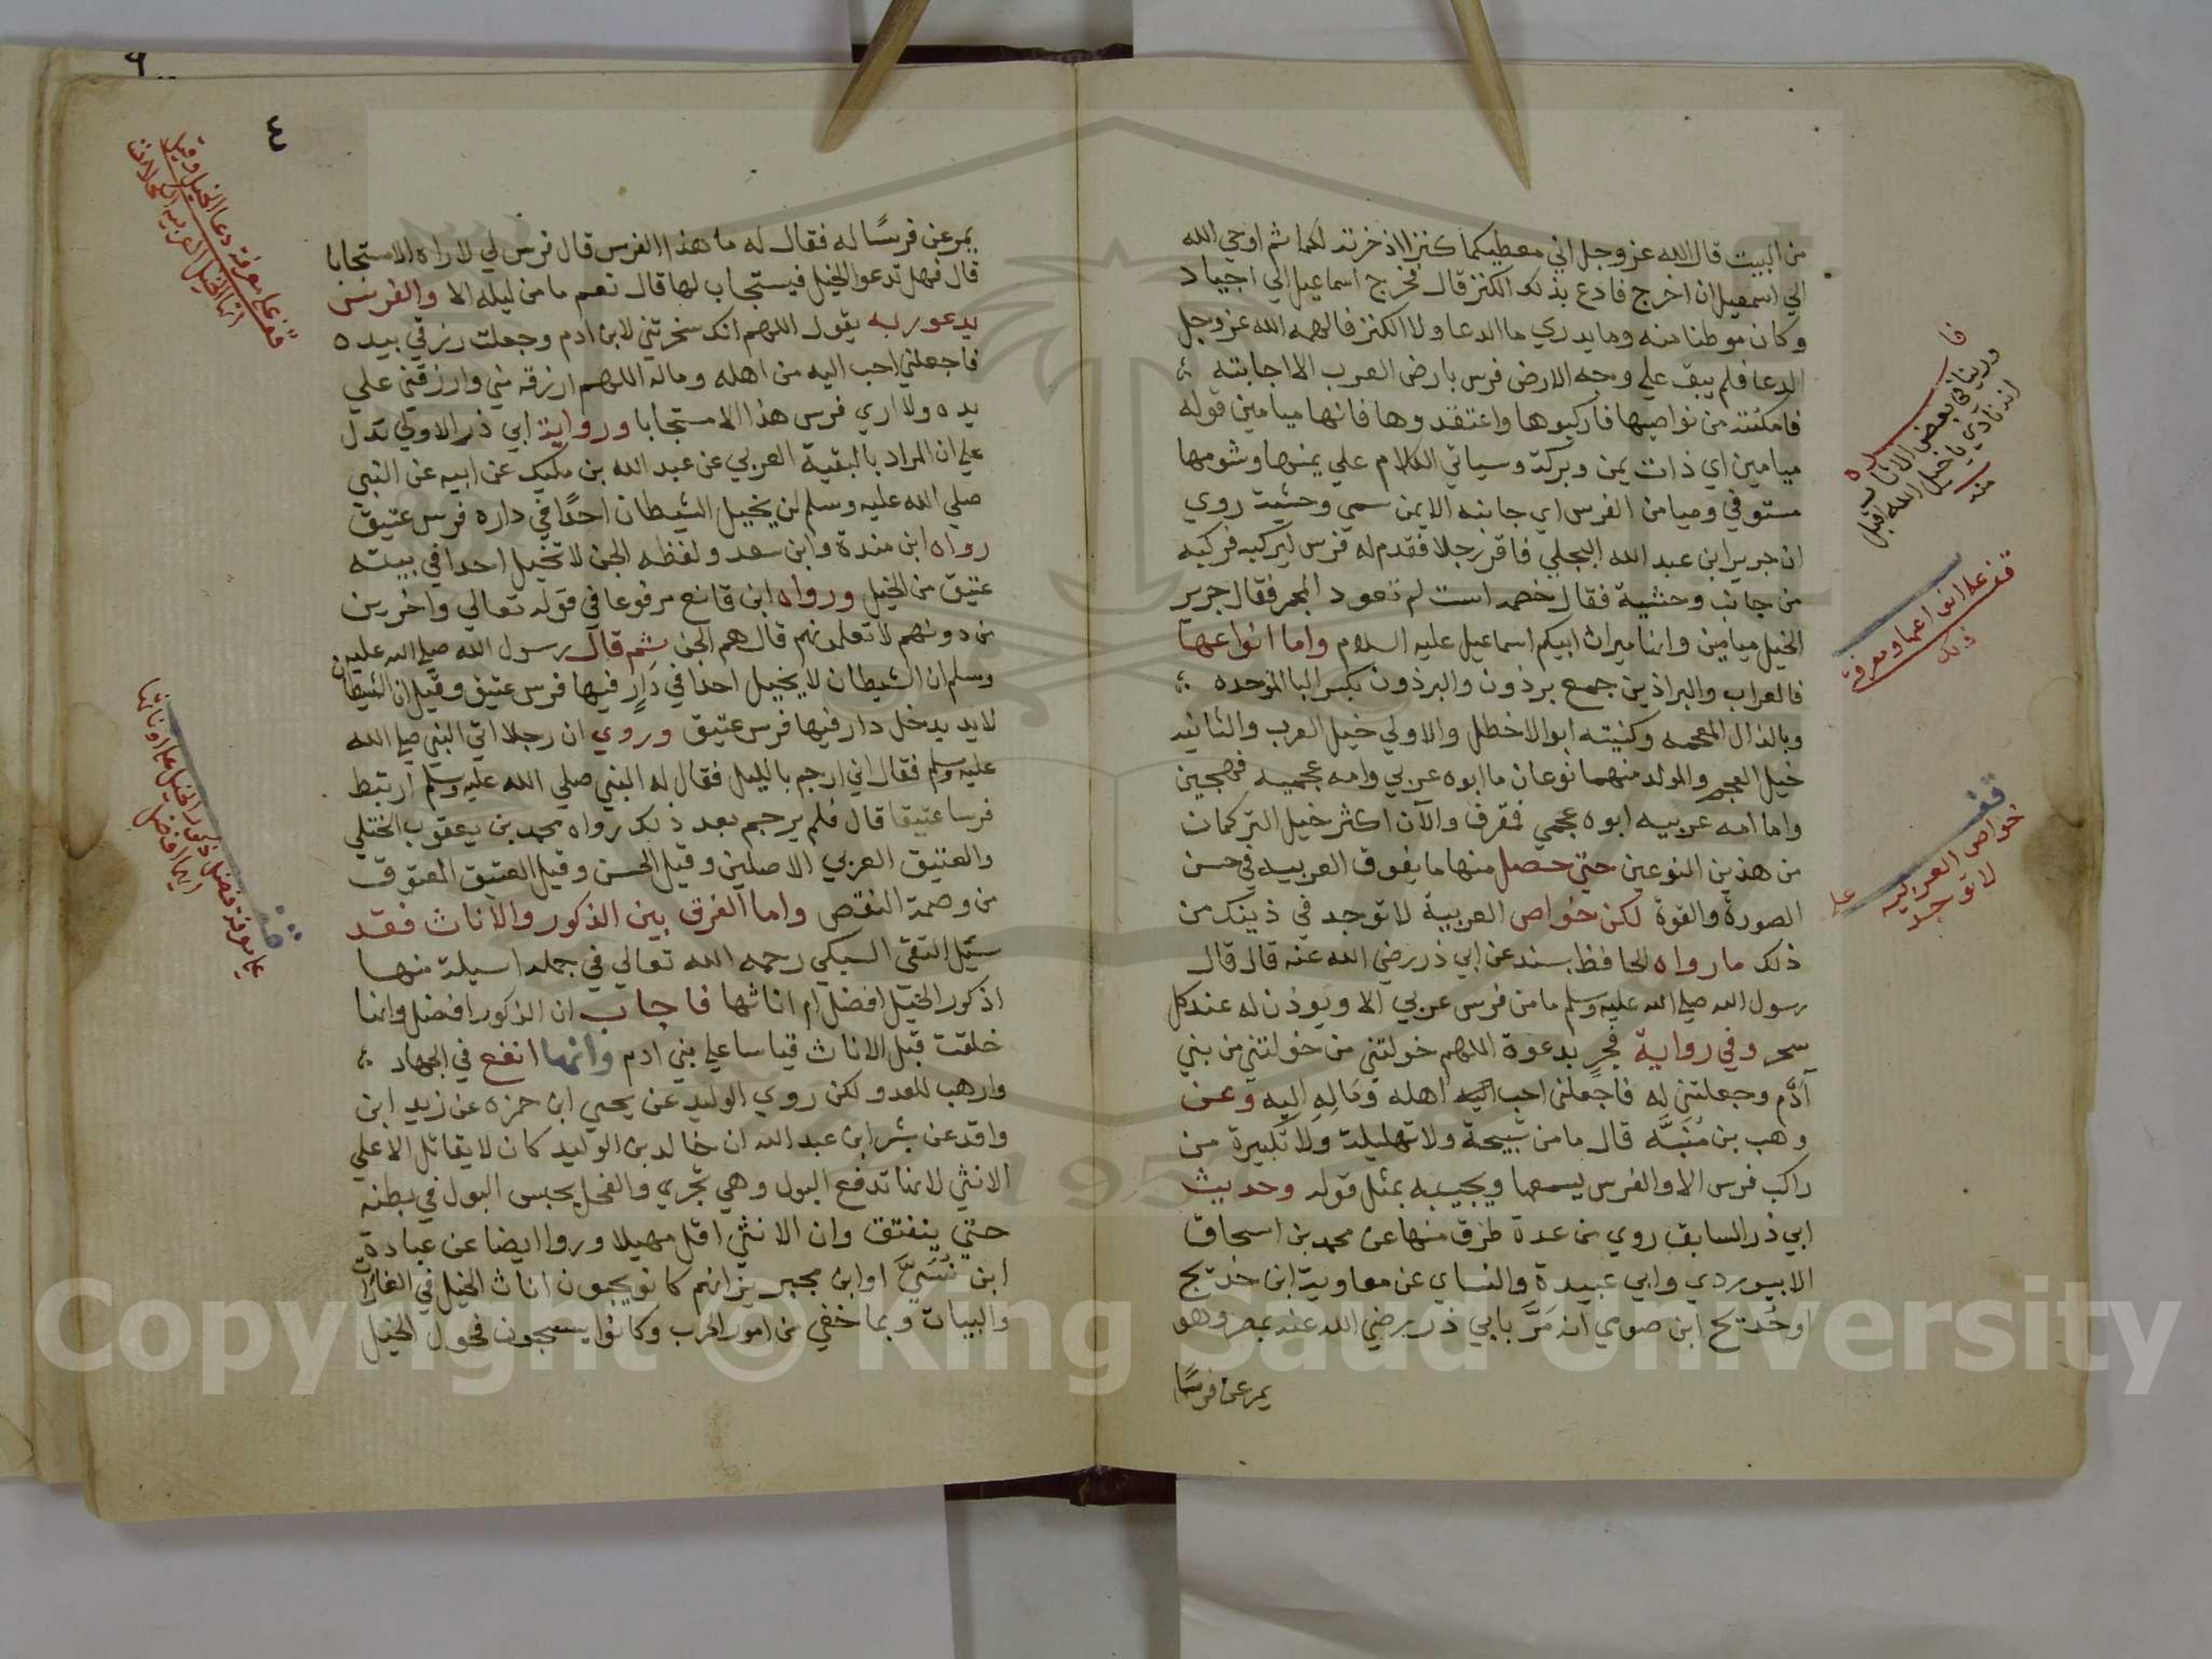 من البيت قال الله عز وجل اني معطيكما كنزا اذخرته لكما ثم اوحي الله
الي اسمعيل ان اخرج فادع بذلك الكنز قال فخرج اسماعيل الي اجياد
وكان موطنا منه وما يدري ما الدعا ولا الكنز فالهمه الله عز وجل
الدعا فلم يبق علي وجه الارض فرس بارض العرب الا اجابته
فامكنته من نواصيها فاركبوها واعتقدوها فانها ميامين قوله
ميامين اي ذات يمن وبركة وسياتي الكلام علي يمنها وشومها
مستوفي وميامن الفرس اي جانبه الايمن سمي وحشيته روي
ان جرير ابن عبد الله البجلي فاقر رجلا فقدم له فرس ليركبه فركبه
من جانب وحشيه فقال خصمه است لم تعود المجمر فقال جرير
الخيل ميامين وانما ميراث ابيكم اسماعيل عليه السلام واما انواعها
فالعراب والبراذين جمع برذون والبرذون بكسر البا الموحده
وبالذال المعجمه وكنيته ابو الاخطل والاولي خيل العرب والثانيه
خيل العجم والمولد منهما نوعان ما ابوه عربي وامه عجميه فهجين
واما امه عربيه ابوه عجمي فمقرف والآن اكثر خيل التركمان
من هذين النوعين حتي حصل منها ما يفوق العربيه في حسن
الصورة والقوة لكن خواص العربية لا توجد في ذينك من
ذلك ما رواه الحافظ بسند عن ابي ذر رضي الله عنه قال قال
رسول الله صلي الله عليه وسلم ما من فرس عربي الا ويوذن له عند كل
سحر وفي رواية فجر بدعوة اللهم خولتني من خولتني من بني
آدم وجعلتني له فاجعلني احب اليه اهله وماله اليه وعن
وهب بن منبه قال ما من تسبيحة ولا تهليلة ولا تكبيرة من
راكب فرس الا والفرس يسمعها ويجيبه بمثل قوله وحديث
ابي ذر السابق روي من عدة طرق منها عن محمد بن اسحاق
الابيوردي وابي عبيدة والنساي عن معاوية ابن خديج
او حُديج ابن صومي انه مَرَّ بابي ذر رضي الله عنه بمصر وهو
يمرغ فرسًا
فا
ورينا في بعض الاثار
انه نادي يا خيل الله اقبل
منه
قف علا انواعها ومعرفة
ذلك
قف
علي
خواص العربيه
لا توجد
٤
يمرغ فرسًا له فقال له ما هذا الفرس قال فرس لي لا اراه الا مستجابا
قال فهل تدعوا الخيل فيستجاب لها قال نعم ما من ليلة الا والفرس
يدعو ربه يقول اللهم انك سخرتني لابن ادم وجعلت رزقي بيده
فاجعلني احب اليه من اهله وماله اللهم ارزقه مني وارزقني علي
يده ولا اري فرس هذا الا مستجابا ورواية ابي ذر الاولي تدل
علي ان المراد بالبقية العربي عن عبد الله بن مليك عن ابيه عن النبي
صلي الله عليه وسلم لن يخبل الشيطان احدًا في داره فرس عتيق
رواه ابن مندة وابن سعد ولفظه الجن لا تخبل احدا في بيته
عتيق من الخيل ورواه ابن قانع مرفوعا في قوله تعالي واخرين
من دونهم لا تعلمونهم قال هم الجن ثم قال رسول الله صلي الله عليه
وسلم ان الشيطان لا يخبل احدا في دار فيها فرس عتيق وقيل ان الشيطان
لا يد يدخل دار فيها فرس عتيق وروي ان رجلا اتي النبي صلي الله
عليه وسلم فقال اني ارجم بالليل فقال له النبي صلي الله عليه وسلم ارتبط
فرسا عتيقا قال فلم يرجم بعد ذلك رواه محمد بن يعقوب الختلي
والعتيق العربي الاصلين وقيل الحسن وقيل العتيق المعتوق
من وصمة النقص واما الفرق بين الذكور والاناث فقد
سئيل التقي السبكي رحمه الله تعالي في جمله اسيلة منها
اذكور الخيل افضل ام اناثها فاجاب ان الذكور افضل وانها
خلقت قبل الاناث قياسا علي بني ادم وانها انفع في الجهاد
وارهب للعدو لكن روي الوليد عن يحيي ابن حمزه عن زيد ابن
واقد عن بشر ابن عبد الله ان خالد بن الوليد كان لا يقاتل الا علي
الانثي لانها تدفع البول وهي تجري والفحل يحبس البول في بطنه
حتي ينفتق وان الانثي اقل صهيلا ورووا ايضا عن عبادة
ابن نُسَيَّ او ابن محيريز انهم كانو يحبون اناث الخيل في الغارات
والبيات وبما خفي من امور الحرب وكانوا يستحبون فحول الخيل
قف علي معرفة دعا الخيل وقيل
انها الخيل العربيه
قف
علي معرفة فضل ذكور الخيل علي اوناثها
ايهما افضل
Copyright © King Saud University
195